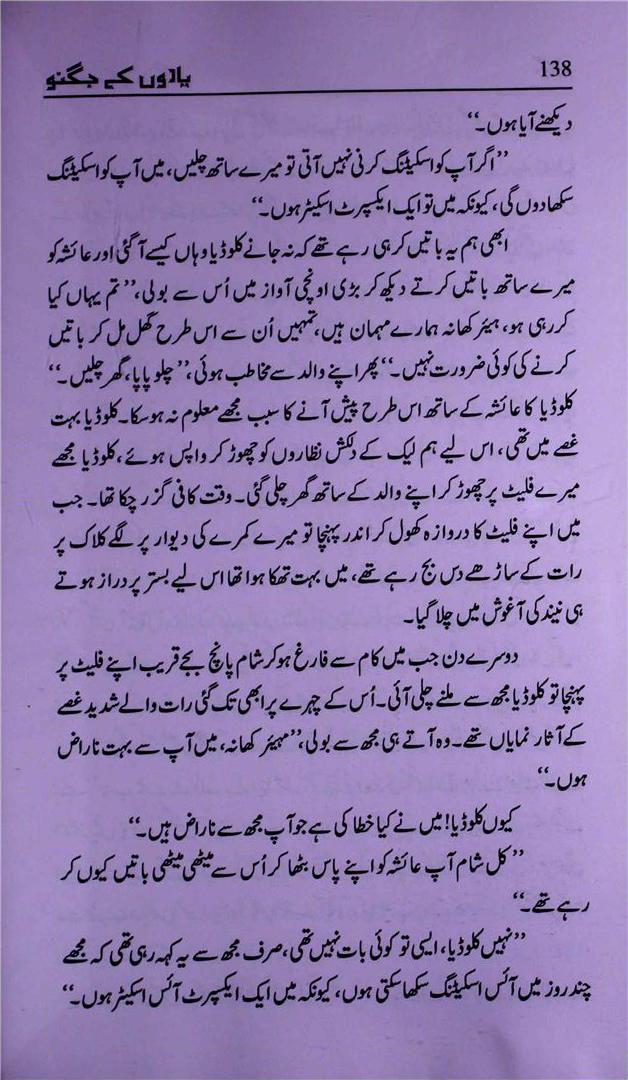 138
یادوں کے جگنو
دیکھنے آیا ہوں۔“
”اگر آپ کو اسکیٹنگ کرنی نہیں آتی تو میرے ساتھ چلیں، میں آپ کو اسکیٹنگ
سکھا دوں گی، کیونکہ میں تو ایک ایکسپرٹ اسکیٹر ہوں۔“
ابھی ہم یہ باتیں کر ہی رہے تھے کہ نہ جانے کلوڈیا وہاں کیسے آ گئی اور عائشہ کو
میرے ساتھ باتیں کرتے دیکھ کر بڑی اونچی آواز میں اُس سے بولی، ”تم یہاں کیا
کر رہی ہو، ہیئر کھانہ ہمارے مہمان ہیں، تمہیں اُن سے اس طرح گھل مل کر باتیں
کرنے کی کوئی ضرورت نہیں۔“ پھر اپنے والد سے مخاطب ہوئی، ”چلو پاپا، گھر چلیں۔“
کلوڈیا کا عائشہ کے ساتھ اس طرح پیش آنے کا سبب مجھے معلوم نہ ہو سکا۔ کلوڈیا بہت
غصے میں تھی، اس لیے ہم لیک کے دلکش نظاروں کو چھوڑ کر واپس ہوئے، کلوڈیا مجھے
میرے فلیٹ پر چھوڑ کر اپنے والد کے ساتھ گھر چلی گئی۔ وقت کافی گزر چکا تھا۔ جب
میں اپنے فلیٹ کا دروازہ کھول کر اندر پہنچا تو میرے کمرے کی دیوار پر لگے کلاک پر
رات کے ساڑھے دس بج رہے تھے، میں بہت تھکا ہوا تھا اس لیے بستر پر دراز ہوتے
ہی نیند کی آغوش میں چلا گیا۔
دوسرے دن جب میں کام سے فارغ ہو کر شام پانچ بجے قریب اپنے فلیٹ پر
پہنچا تو کلوڈیا مجھ سے ملنے چلی آئی۔ اُس کے چہرے پر ابھی تک گئی رات والے شدید غصے
کے آثار نمایاں تھے۔ وہ آتے ہی مجھ سے بولی، ”مہیئر کھانہ، میں آپ سے بہت ناراض
ہوں۔“
کیوں کلوڈیا! میں نے کیا خطا کی ہے جو آپ مجھ سے ناراض ہیں۔“
”کل شام آپ عائشہ کو اپنے پاس بٹھا کر اُس سے میٹھی میٹھی باتیں کیوں کر
رہے تھے۔“
”نہیں کلوڈیا، ایسی تو کوئی بات نہیں تھی، صرف مجھ سے یہ کہہ رہی تھی کہ مجھے
چند روز میں آئس اسکیٹنگ سکھا سکتی ہوں، کیونکہ میں ایک ایکسپرٹ آئس اسکیٹر ہوں۔“